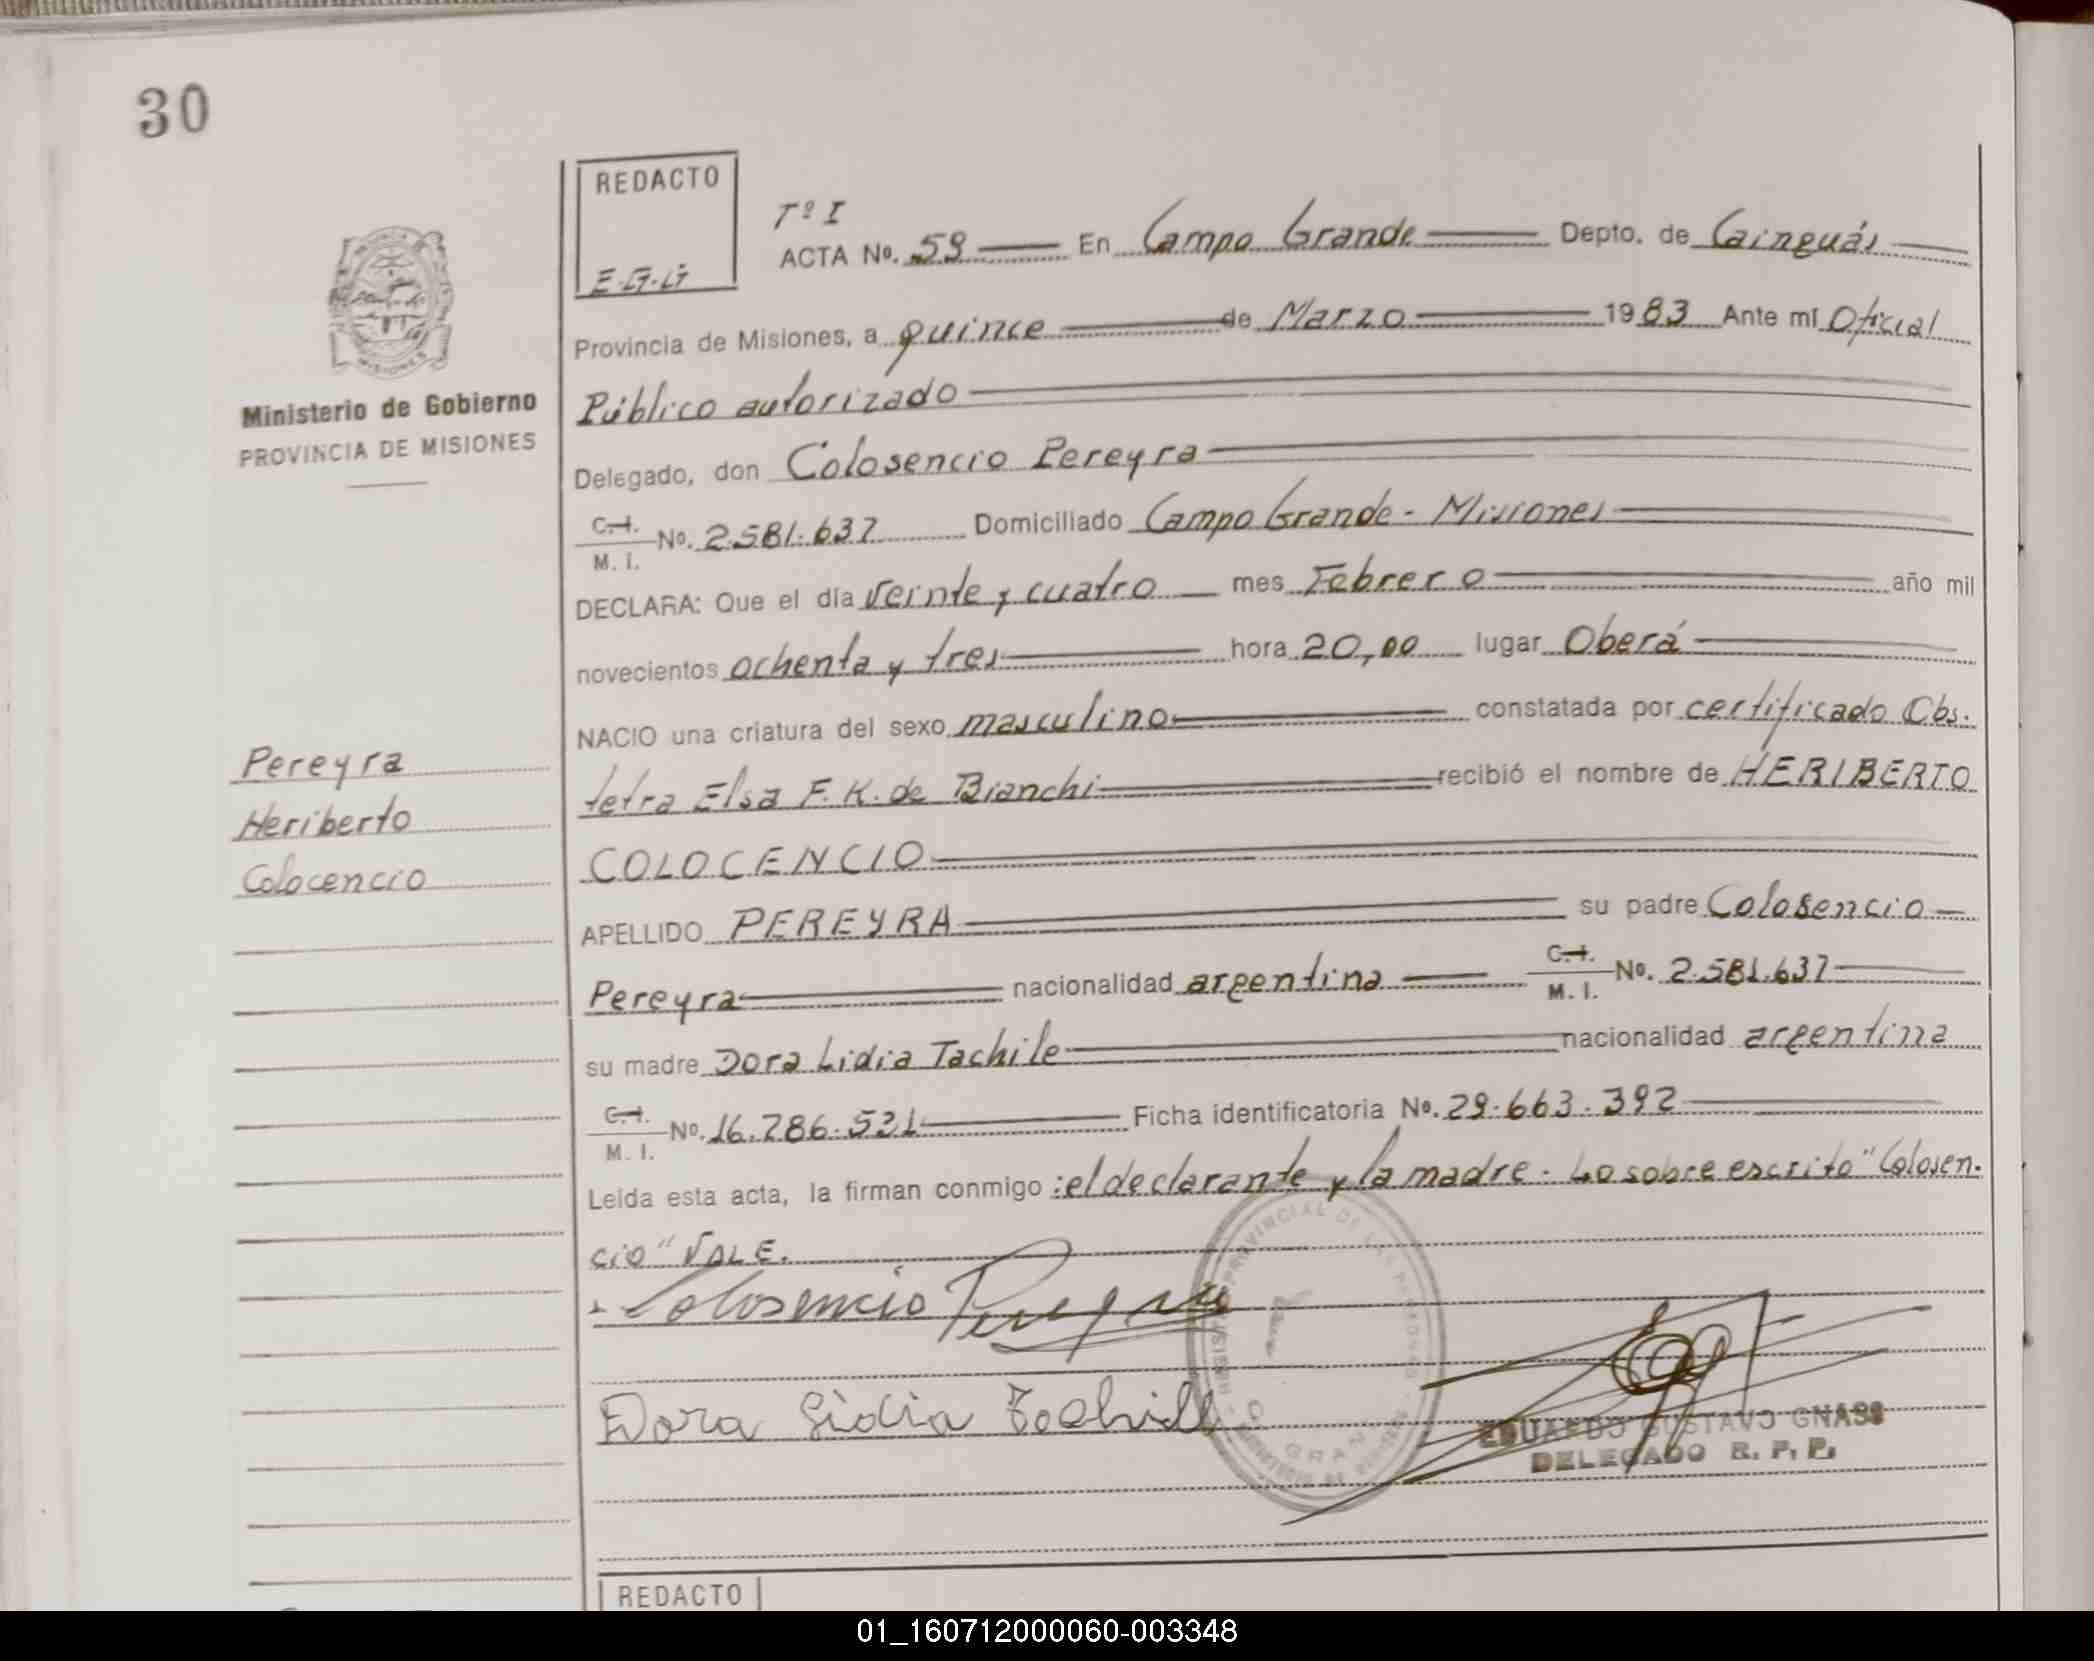 30
REDACTO
E.G.G
Tº I
ACTA Nº. 59 En Campo Grande Depto. de Cainguás
Provincia de Misiones, a quince de Marzo 1983 Ante mí Oficial
Público autorizado
Delegado, don Colosencio Pereyra
C.I. M. I. Nº. 2.581.637 Domiciliado Campo Grande - Misiones
DECLARA: Que el día veinte y cuatro mes Febrero año mil
novecientos ochenta y tres hora 20,00 lugar Oberá
NACIO una criatura del sexo masculino constatada por certificado Obs.
tetra Elsa F. K. de Bianchi recibió el nombre de HERIBERTO
COLOCENCIO
APELLIDO PEREYRA su padre Colosencio
Pereyra nacionalidad argentina C.I. M. I. Nº. 2.581.637
su madre Dora Lidia Tachile nacionalidad argentina
C.I. M. I. Nº. 16.786.531 Ficha identificatoria Nº. 29.663.392
Leída esta acta, la firman conmigo : el declarante y la madre. Lo sobre escrito "Colosen-
cio" VALE.
Colosencio Pereyra
Dora Lidia
REGISTRO PROVINCIAL DE LAS PERSONAS
EDUARDO GUSTAVO GNASS
DELEGADO R. P. P.
MISIONES
Ministerio de Gobierno
PROVINCIA DE MISIONES
Pereyra
Heriberto
Colocencio
REDACTO
01_160712000060-003348